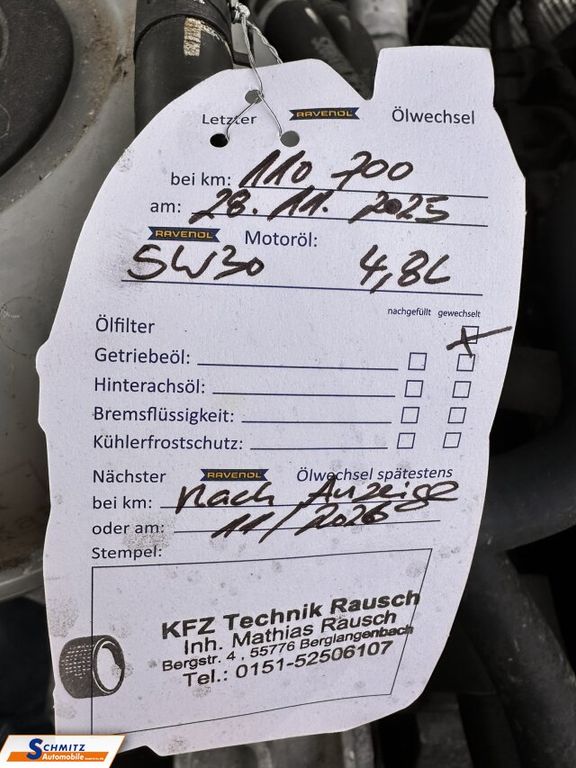 Letzter RAVENOL Ölwechsel
bei km: 110 700
am: 28. 11. 2025
RAVENOL Motoröl:
5W30 4,8L
nachgefüllt gewechselt
Ölfilter
Getriebeöl:
Hinterachsöl:
Bremsflüssigkeit:
Kühlerfrostschutz:
Nächster RAVENOL Ölwechsel spätestens
bei km: nach Anzeige
oder am: 11/2026
Stempel:
KFZ Technik Rausch
Inh. Mathias Rausch
Bergstr. 4 , 55776 Berglangenbach
Tel.: 0151-52506107
SCHMITZ
Automobile